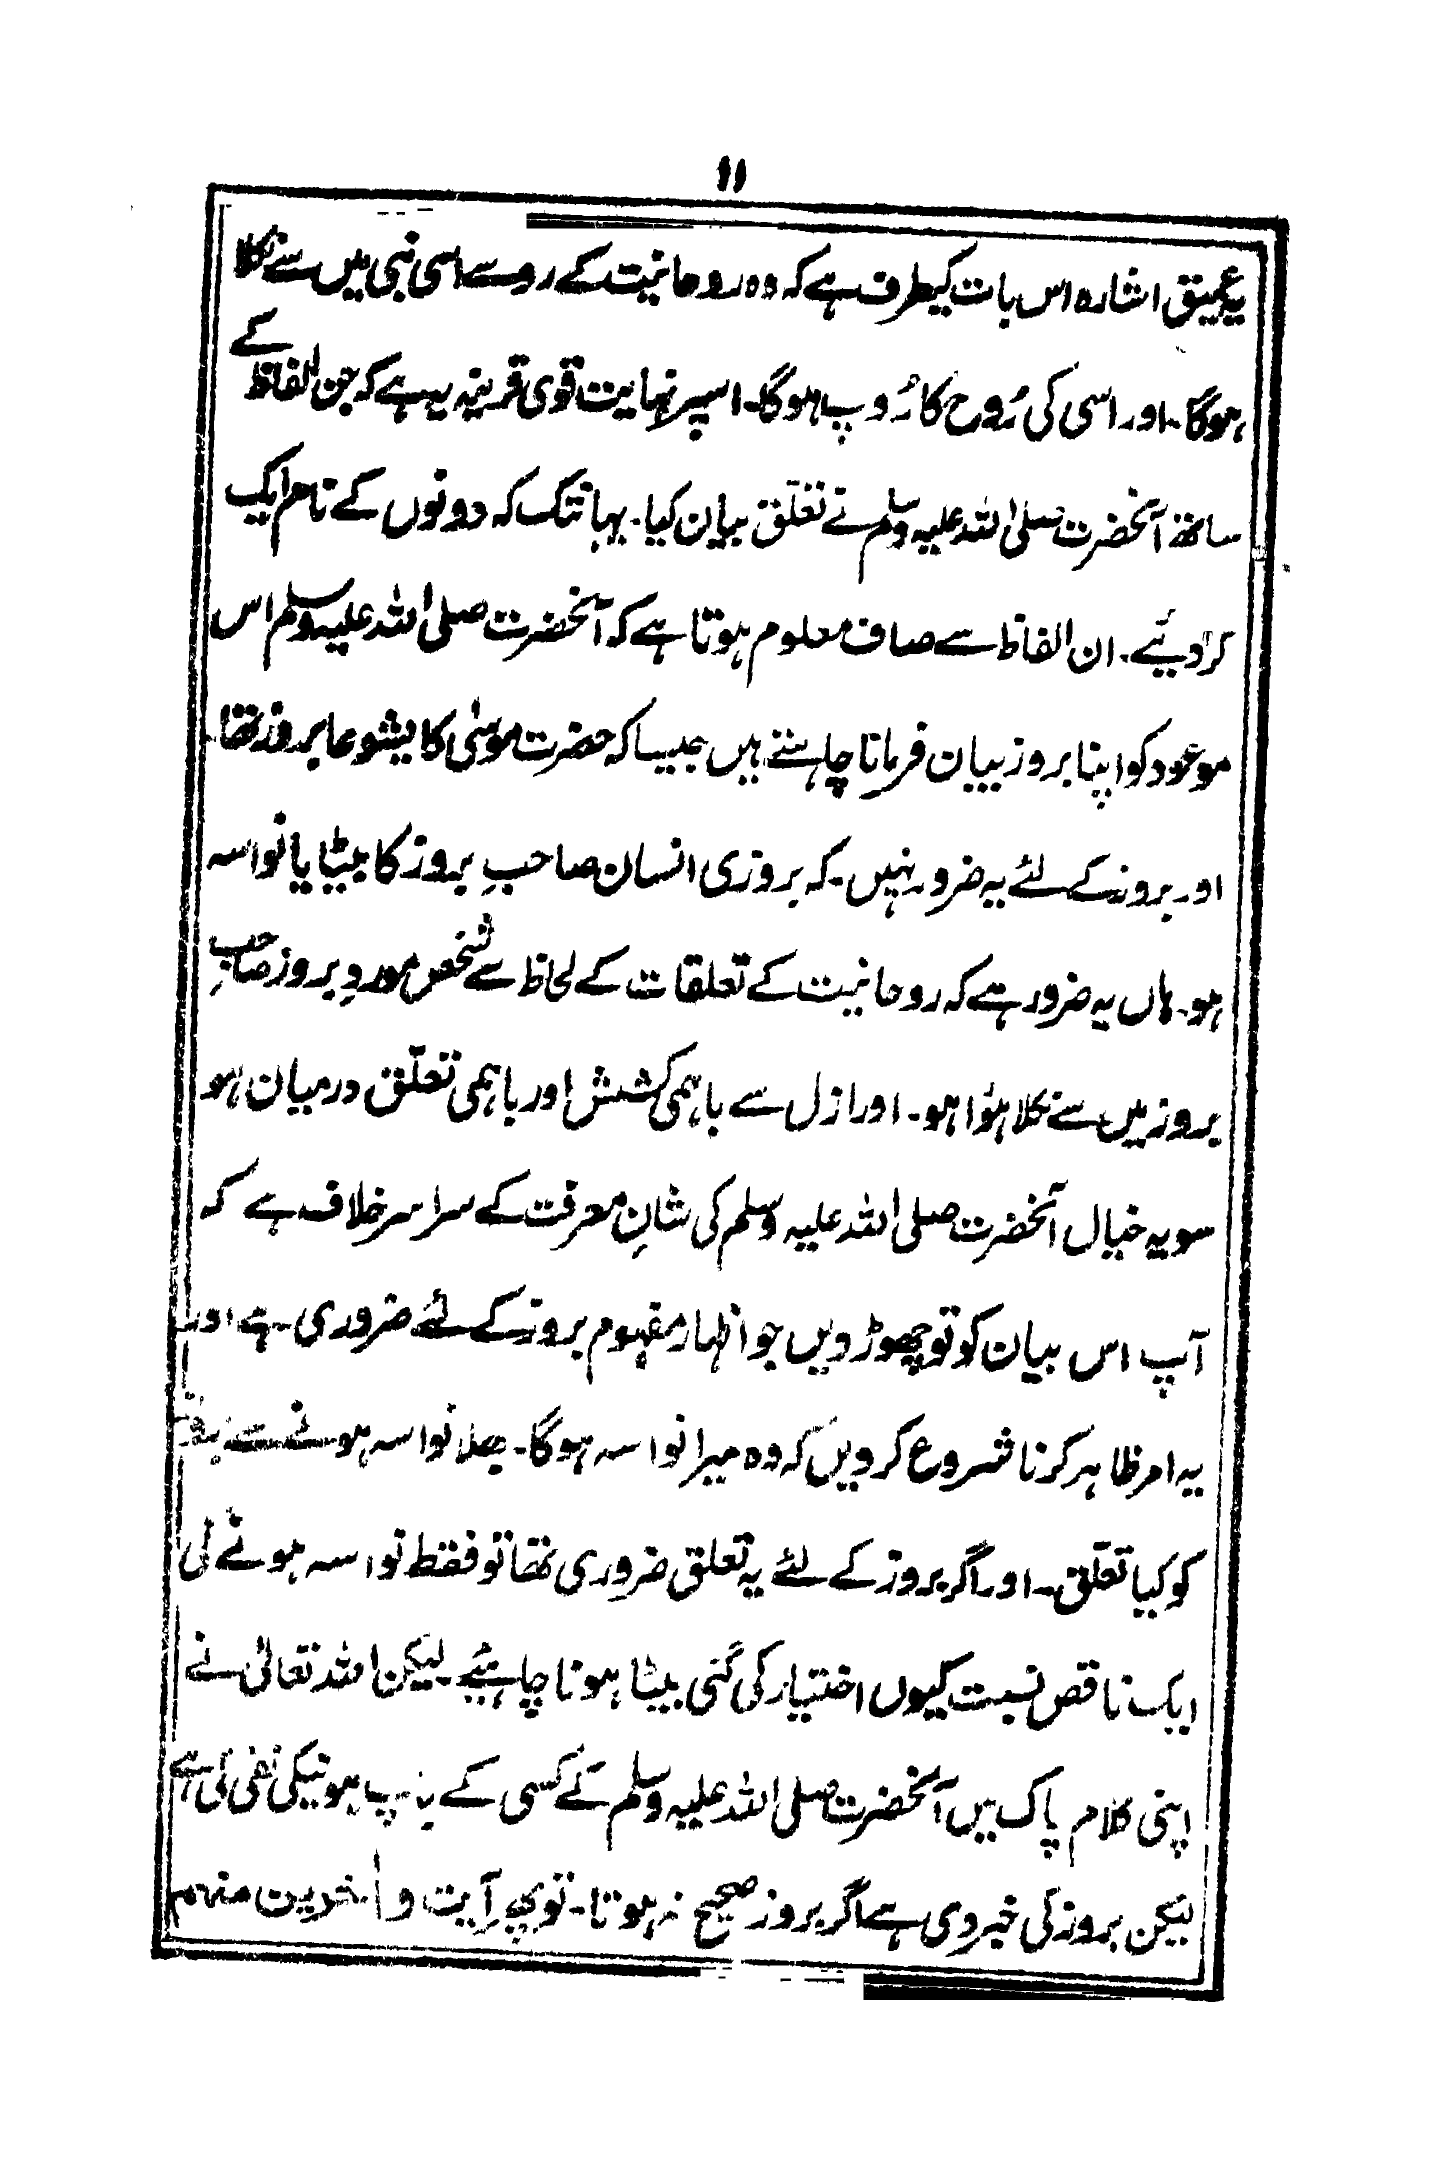 ۱۱
یہ عمیق اشارہ اس بات کیطرف ہے کہ وہ روحانیت کے رو سے اسی نبی میں سے نکلا
ہوگا۔ اور اسی کی رُوح کا رُوپ ہوگا۔ اسپر نہایت قوی قرینہ یہ ہے کہ جن الفاظ کے
ساتھ آنحضرت صلی اللہ علیہ وسلم نے تعلّق بیان کیا۔ یہانتک کہ دونوں کے نام ایک
کر دئیے۔ ان الفاظ سے صاف معلوم ہوتا ہے کہ آنحضرت صلی اللہ علیہ وسلم اس
موعود کو اپنا بروز بیان فرمانا چاہتے ہیں جیسا کہ حضرت موسٰی کا یشوعا بروز تھا۔
اور بروز کے لئے یہ ضرور نہیں۔ کہ بروزی انسان صاحبِ بروز کا بیٹا یا نواسہ
ہو۔ ہاں یہ ضرور ہے کہ روحانیت کے تعلقات کے لحاظ سے شخص موردِ بروز صاحبِ
بروز میں سے نکلا ہؤا ہو۔ اور ازل سے باہمی کشش اور باہمی تعلّق درمیان ہو
سو یہ خیال آنحضرت صلی اللہ علیہ وسلم کی شانِ معرفت کے سراسر خلاف ہے کہ
آپ اس بیان کو تو چھوڑ دیں جو اظہار مفہوم بروز کے لئے ضروری ہے اور
یہ امر ظاہر کرنا شروع کر دیں کہ وہ میرا نواسہ ہوگا۔ بھلا نواسہ ہونے سے بروز
کو کیا تعلّق۔ اور اگر بروز کے لئے یہ تعلق ضروری تھا تو فقط نواسہ ہونے کی
ایک ناقص نسبت کیوں اختیار کی گئی بیٹا ہونا چاہیئے۔ لیکن اللہ تعالیٰ نے
اپنی کلام پاک میں آنحضرت صلی اللہ علیہ وسلم کے کسی کے باپ ہونیکی نفی کی ہے
لیکن بروز کی خبر دی ہے اگر بروز صحیح نہ ہوتا۔ تو پھر آیت وآخرین منہم